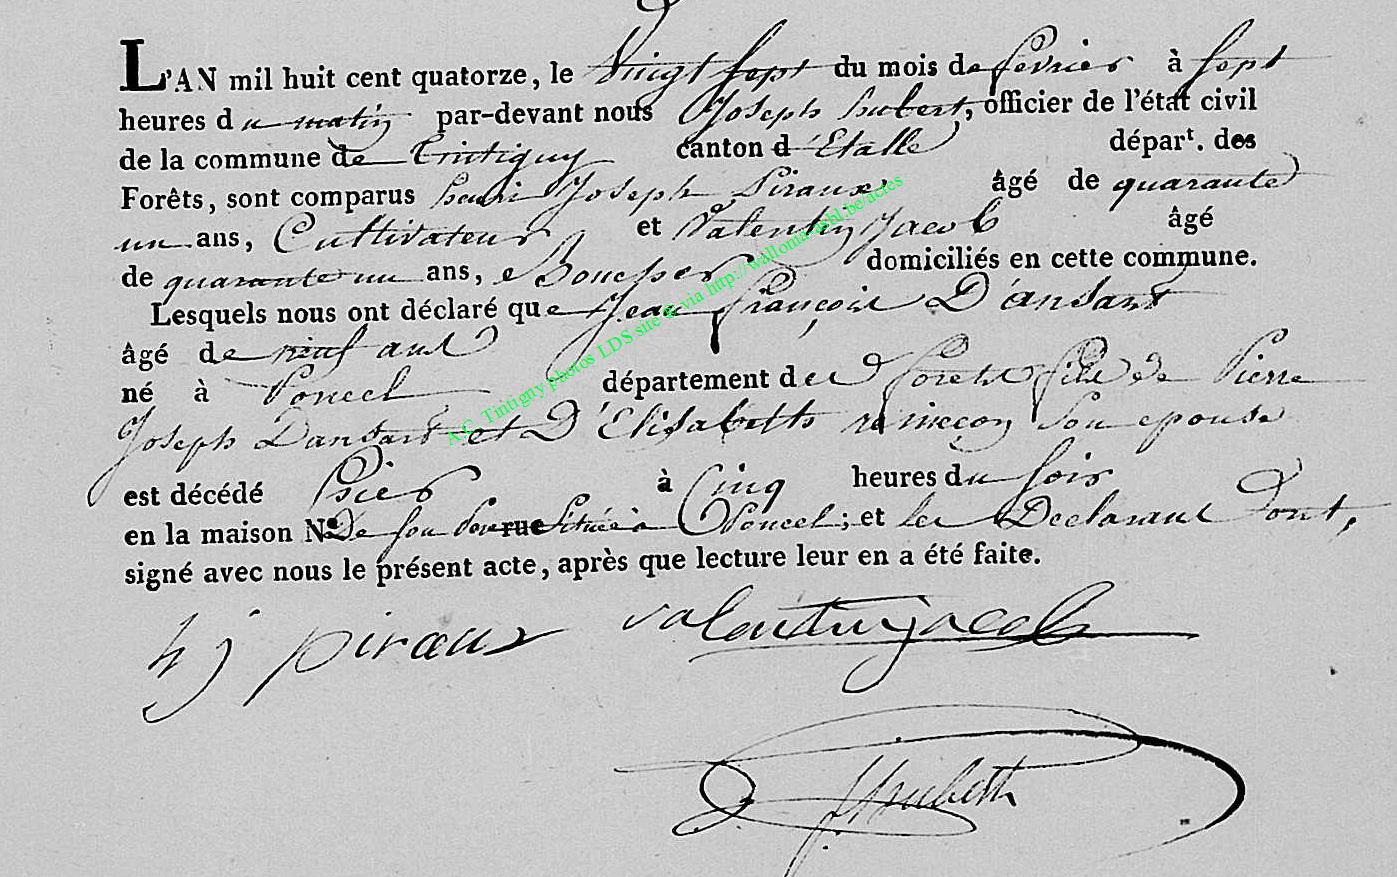 L'AN mil huit cent quatorze, le Vingt sept du mois de fevrier à sept
heures du matin par-devant nous Joseph hubert, officier de l'état civil
de la commune de Tintigny canton d'Etalle dépar^t. des
Forêts, sont comparus henri Joseph Piraux âgé de quarante
un ans, Cultivateur et Valentin Jacob âgé
de quarante un ans, Boucher domiciliés en cette commune.
Lesquels nous ont déclaré que Jean françois D'ansart
âgé de neuf ans
né à Poncel département des forets fils de Pierre
Joseph Dansart et D'Elisabeth remieçon son epouse
est décédé hier à Cinq heures du soir
en la maison N.° De son Pere rue située à Poncel; et les Declarans Dont,
signé avec nous le présent acte, après que lecture leur en a été faite.
h j piraux valentin jacob
J hubert
A.C. Tintigny photos LDS site & via http://wallonia.asbl.be/actes